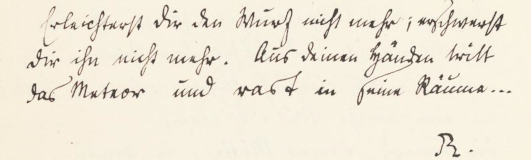 Erleichterst dir den Wurf nicht mehr; erschwerst
dir ihn nicht mehr. Aus deinen Händen tritt
das Meteor und rast in seine Räume...
R.